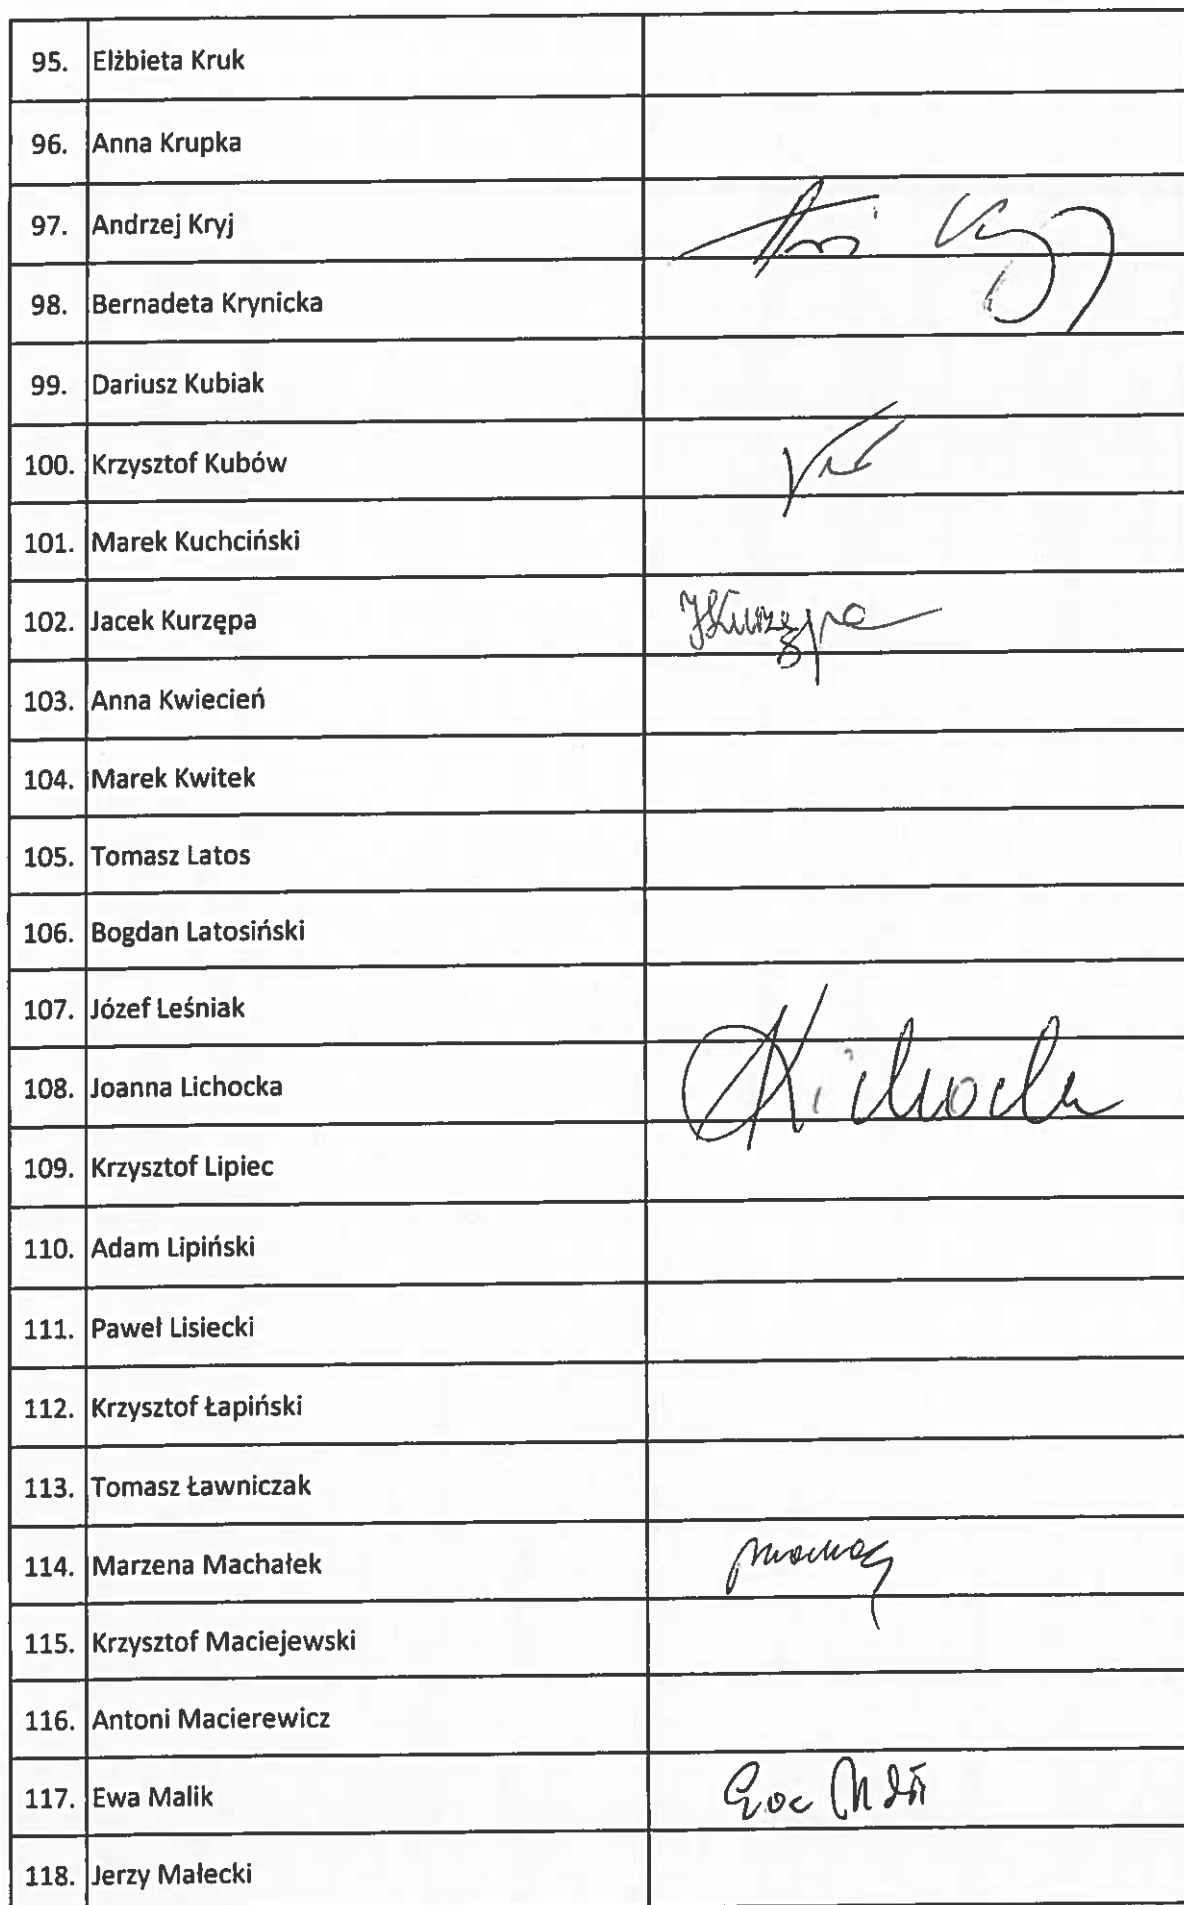 95. Elżbieta Kruk
96. Anna Krupka
97. Andrzej Kryj
98. Bernadeta Krynicka
99. Dariusz Kubiak
100. Krzysztof Kubów
101. Marek Kuchciński
102. Jacek Kurzępa JKurzępa
103. Anna Kwiecień
104. Marek Kwitek
105. Tomasz Latos
106. Bogdan Latosiński
107. Józef Leśniak
108. Joanna Lichocka
109. Krzysztof Lipiec
110. Adam Lipiński
111. Paweł Lisiecki
112. Krzysztof Łapiński
113. Tomasz Ławniczak
114. Marzena Machałek
115. Krzysztof Maciejewski
116. Antoni Macierewicz
117. Ewa Malik Ewa Malik
118. Jerzy Małecki